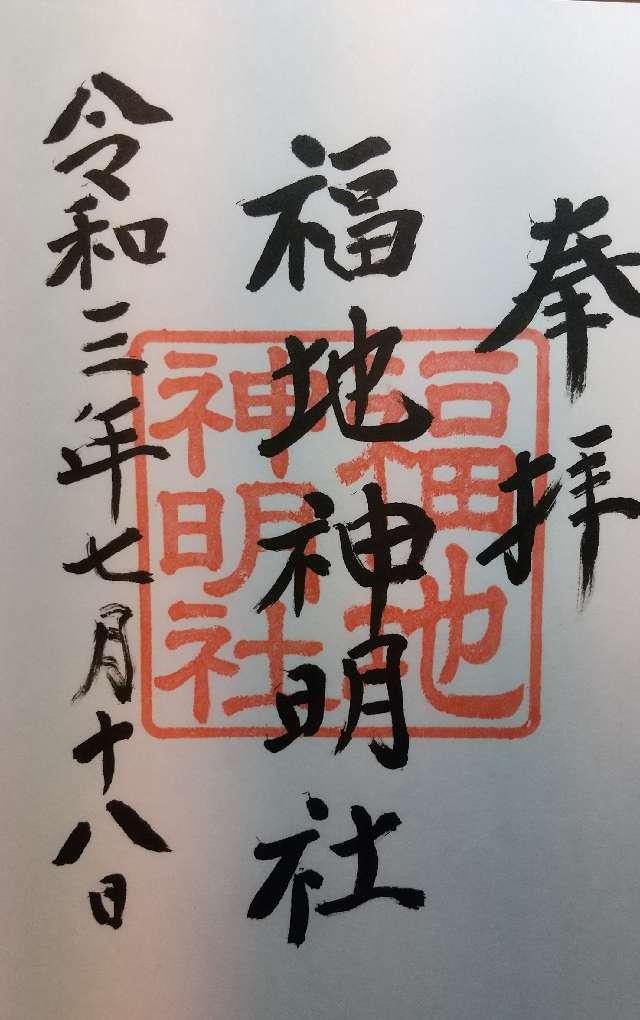 奉拝
福地神明社
令和三年七月十八日
福地
神明社